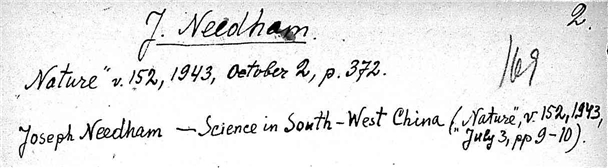 2.
J. Needham.
„Nature" v. 152, 1943, October 2, p. 372.
169
Joseph Needham — Science in South-West China („Nature", v. 152, 1943,
July 3, pp 9-10).